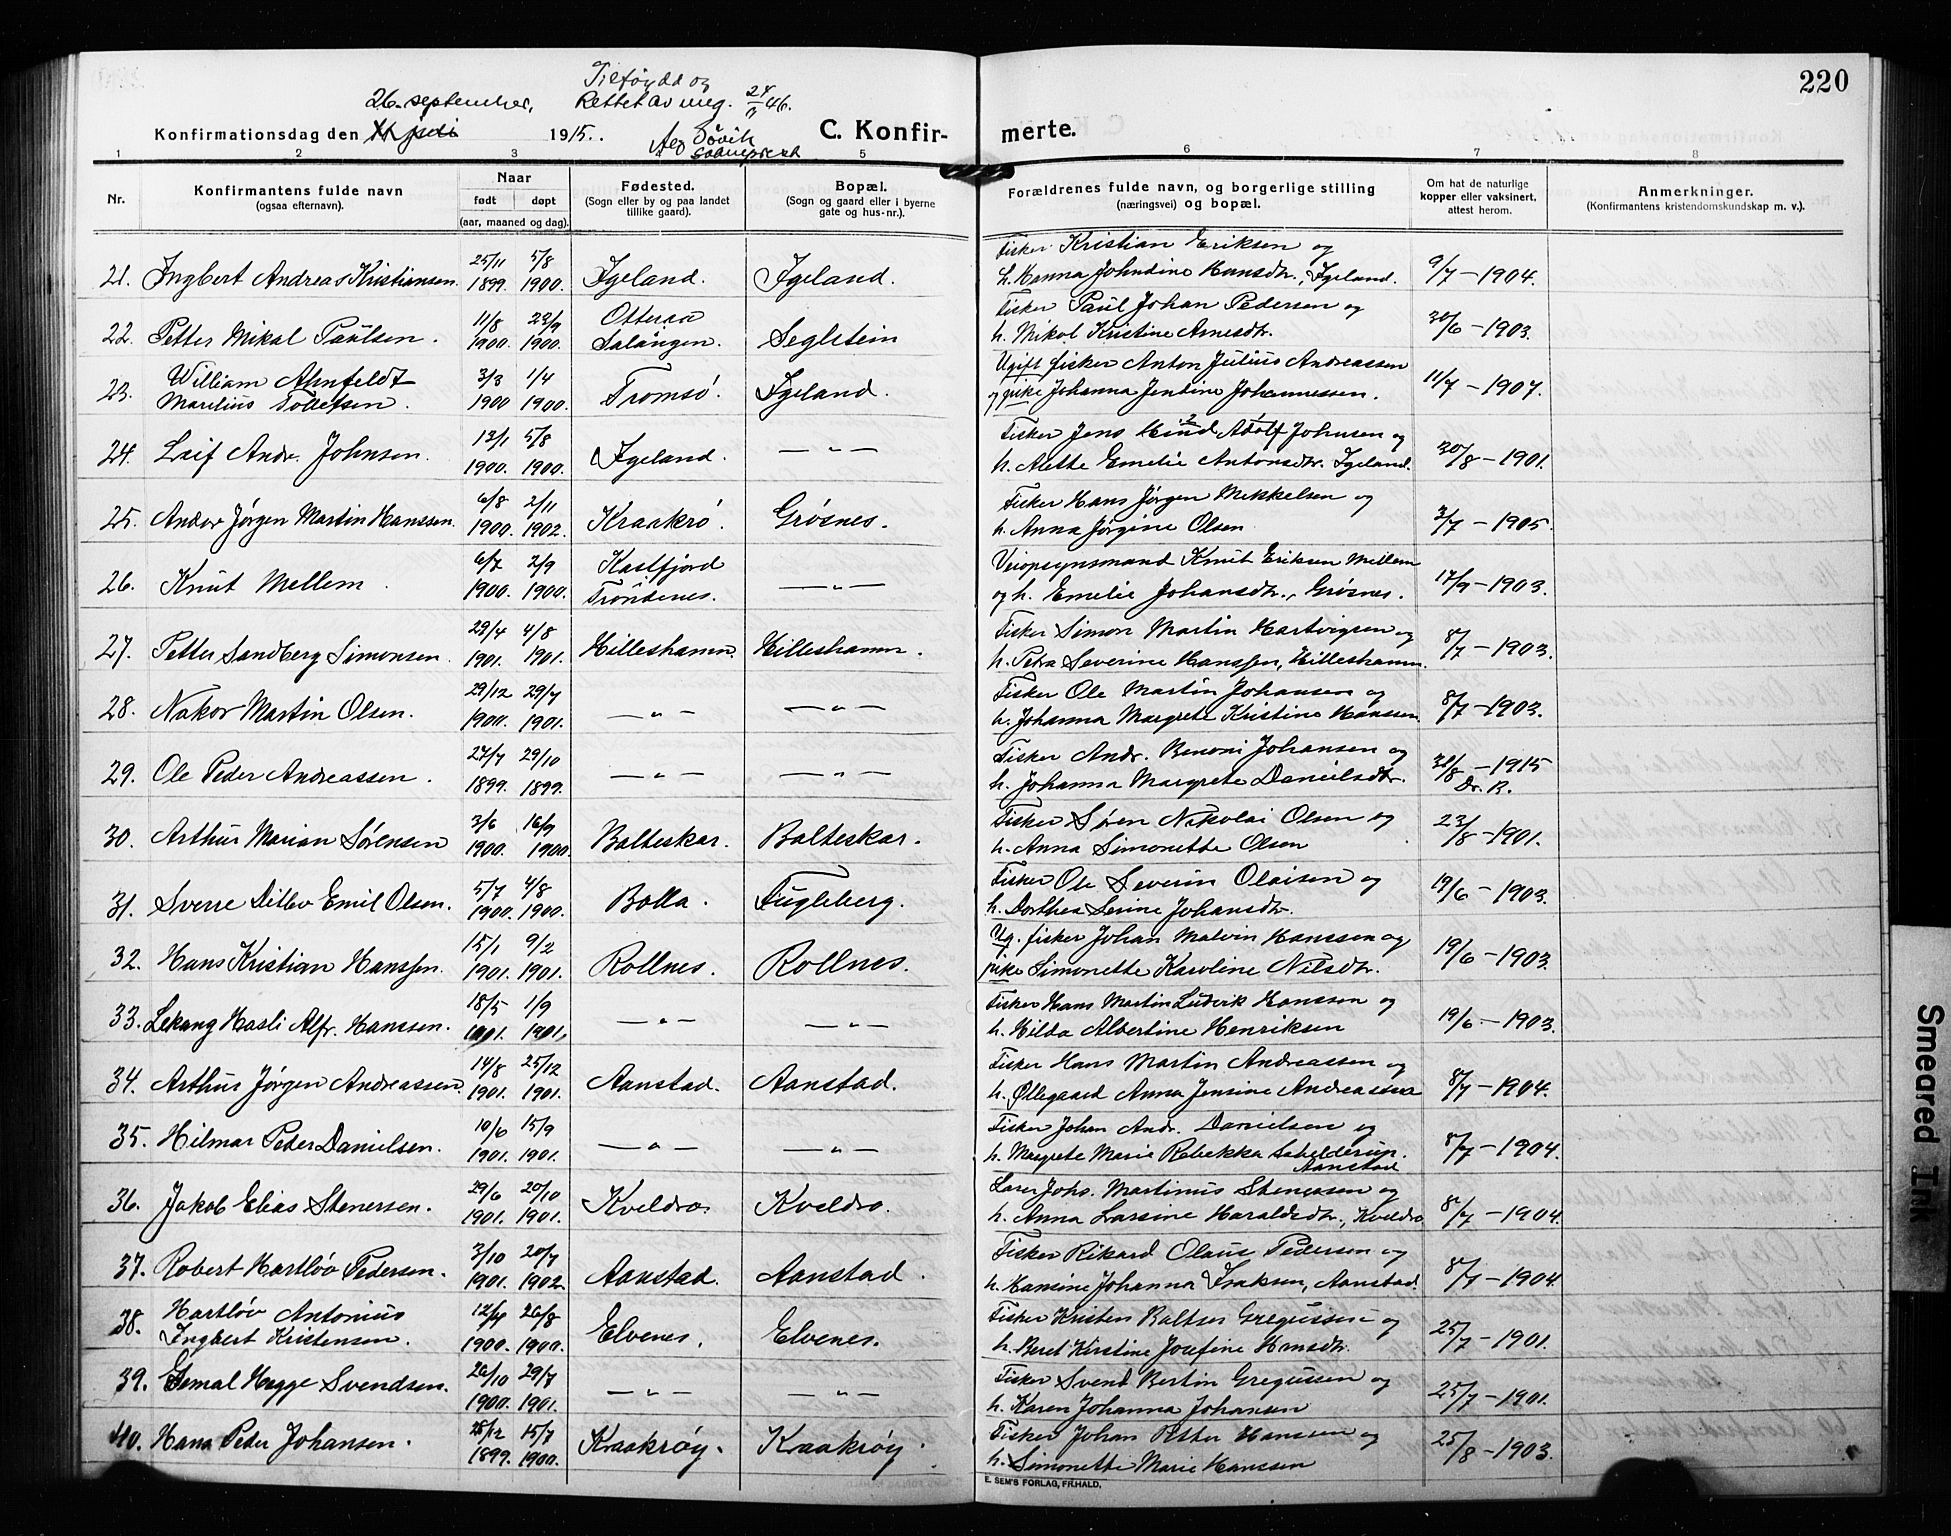 220
Tilføydd og
26. september, Rettet av meg. 24/ 46.
Konfirmationsdag den 1915. C. Konfirmerte.
Søvik
sokneprest
1 2 3 4 5 6 7 8
Nr. Konfirmantens fulde navn (ogsaa efternavn). Naar født døpt (aar, maaned og dag). Fødested. (Sogn eller by og paa landet tillike gaard). Bopæl. (Sogn og gaard eller i byerne gate og hus-nr.). Forældrenes fulde navn, og borgerlige stilling (næringsvei) og bopæl. Om hat de naturlige kopper eller vaksinert, attest herom. Anmerkninger. (Konfirmantens kristendomskundskap m. v.).
21. Ingbert Andreas Kristiansen. 25/11 1899. 5/8 1900. Igeland. Igeland. Fisker Kristian Eriksen og
h. Hanna Johndine Hansdtr., Igeland. 9/7 – 1904.
22. Petter Mikal Paulsen. 11/8 1900. 23/9 1900. Otteraa Salangen. Seglstein Fisker Paul Johan Pedersen og
h. Mikol Kristine Arnesdtr. 30/6 – 1903.
23. William Ahnfeldt Marelius Tollefsen. 3/3 1900 1/4 1900. Tromsö. Igeland. Ugift fisker Anton Julius Andreassen
og pike Johanna Jentine Johannessen. 11/7 – 1907.
24. Leif Andr. Johnsen. 13/1 1900. 5/8 1900. Igeland. — „ — Fisker Jens Hind Adolf Johnsen og
h. Alette Emelie Antonsdtr. Igeland. 30/8 – 1901.
25. Andor Jørgen Martin Hanssen. 6/8 1900. 2/11 1902. Kraakrö. Grøsnes. Fisker Hans Jørgen Mikkelsen og
h. Anna Jørgine Olsen 3/7 – 1905.
26. Knut Mellem. 6/7 1900. 2/9 1900. Kastfjord Trondenes. — „ — Veiopsynsmand Knut Eriksen Mellem
og h. Emelie Johansdtr., Grøsnes. 17/9 – 1903.
27. Petter Sandberg Simonsen. 29/4 1901. 4/8 1901. Hilleshamn. Hilleshamn. Fisker Simon Martin Hartvigsen og
h. Petra Severine Hanssen, Hilleshamn. 8/7 – 1903.
28. Nakor Martin Olsen. 29/12 1900. 29/7 1901. — „ — — „ — Fisker Ole Martin Johansen og
h. Johanna Margrete Kristine Hanssen 8/7 – 1903.
29. Ole Peder Andreassen. 27/7 1899. 29/10 1899. — „ — — „ — Fisker Andr. Benoni Johansen og
h. Johanna Margrete Danielsdtr. 30/8 – 1915 Dr. R.
30. Arthur Marian Sørensen 3/6 1900. 16/9 1900. Balteskar. Balteskar. Fisker Søren Nikolai Olsen og
h. Anna Simonette Olsen 23/8 – 1901.
31. Sverre Ditlev Emil Olsen. 5/7 1900. 4/8 1900. Bolla. Fugleberg. Fisker Ole Severin Olaisen og
h. Dorthea Serine Johansdtr. 19/6 – 1903.
32. Hans Kristian Hanssen. 15/1 1901. 9/2 1901. Rollnes. Rollnes. Ug. fisker Johan Malvin Hanssen og
pike Simonette Karoline Nilsdtr. 19/6 – 1903.
33. Lekang Hasli Alfr. Hanssen. 18/5 1901. 1/9 1901. — „ — — „ — Fisker Hans Martin Ludvik Hanssen og
h. Hilda Albertine Henriksen 19/6. – 1903.
34. Arthur Jørgen Andreassen 14/8 1901. 25/12 1901. Aanstad. Aanstad. Fisker Hans Martin Andreassen og
h. Øllegaard Anna Jensine Andreassen 8/7 – 1904.
35. Hilmar Peder Danielsen. 10/6 1901. 15/9 1901. — „ — — „ — Fisker Johan Andr. Danielsen og
h. Margrete Marie Rebekka Schelderup. Aanstad 8/7 – 1904.
36. Jakob Elias Stenersen. 29/6 1901. 20/10 1901. Kveldro. Kveldro. Lærer Johs. Martinus Stenersen og
h. Anna Larsine Haraldsdtr., Kveldro 8/7 – 1904.
37. Robert Hartløv Pedersen. 3/10 1901. 20/7 1902. Aanstad. Aanstad. Fisker Rikard Olaus Pedersen og
h. Hansine Johanna Isaksen, Aanstad. 8/7 – 1904.
38. Hartløv Antonius Ingbert Kristensen. 12/4 1900. 26/8 1900. Elvenes. Elvenes. Fisker Kristen Baltser Gregussen og
h. Beret Kirstine Josefine Hansdtr. 25/7 – 1901.
39. Hegge Svendsen. 26/10 1900. 29/7 1901. — „ — — „ — Fisker Svend Bertin Gregussen og
h. Karen Johanna Johansen 25/7 – 1901.
40. Hans Peder Johansen. 25/12 1899. 15/7 1900. Kraakrøy. Kraakrøy. Fisker Johan Peter Hanssen og
h. Simonette Marie Hanssen 25/8 – 1903.
E. SEM'S FORLAG, FR.HALD.
Smeared Ink